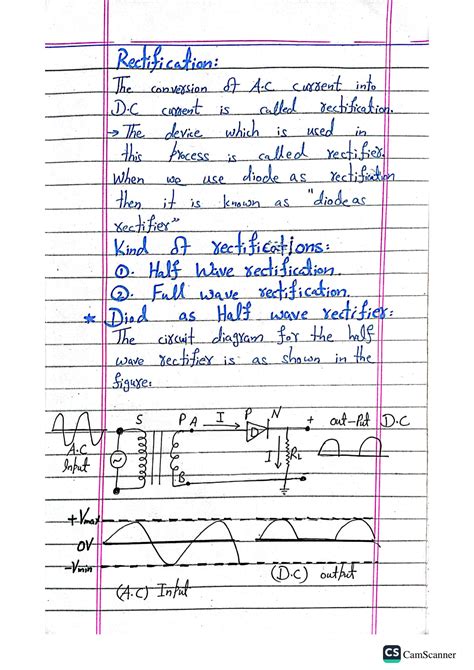 Rectification:
The conversion of A.C current into
D.C current is called rectification.
→ The device which is used in
this process is called rectifier.
When we use diode as rectification
then it is known as "diode as
rectifier"
Kind of rectifications:
①. Half Wave rectification.
②. Full wave rectification.
* Diod as Half wave rectifier:
The circuit diagram for the half
wave rectifier is as shown in the
figure:
S P A I P N + out-Put D.C
A.C
Input
D
I RL
B
+Vmax
0V
-Vmin
(A.C) Input
(D.C) output
CS CamScanner